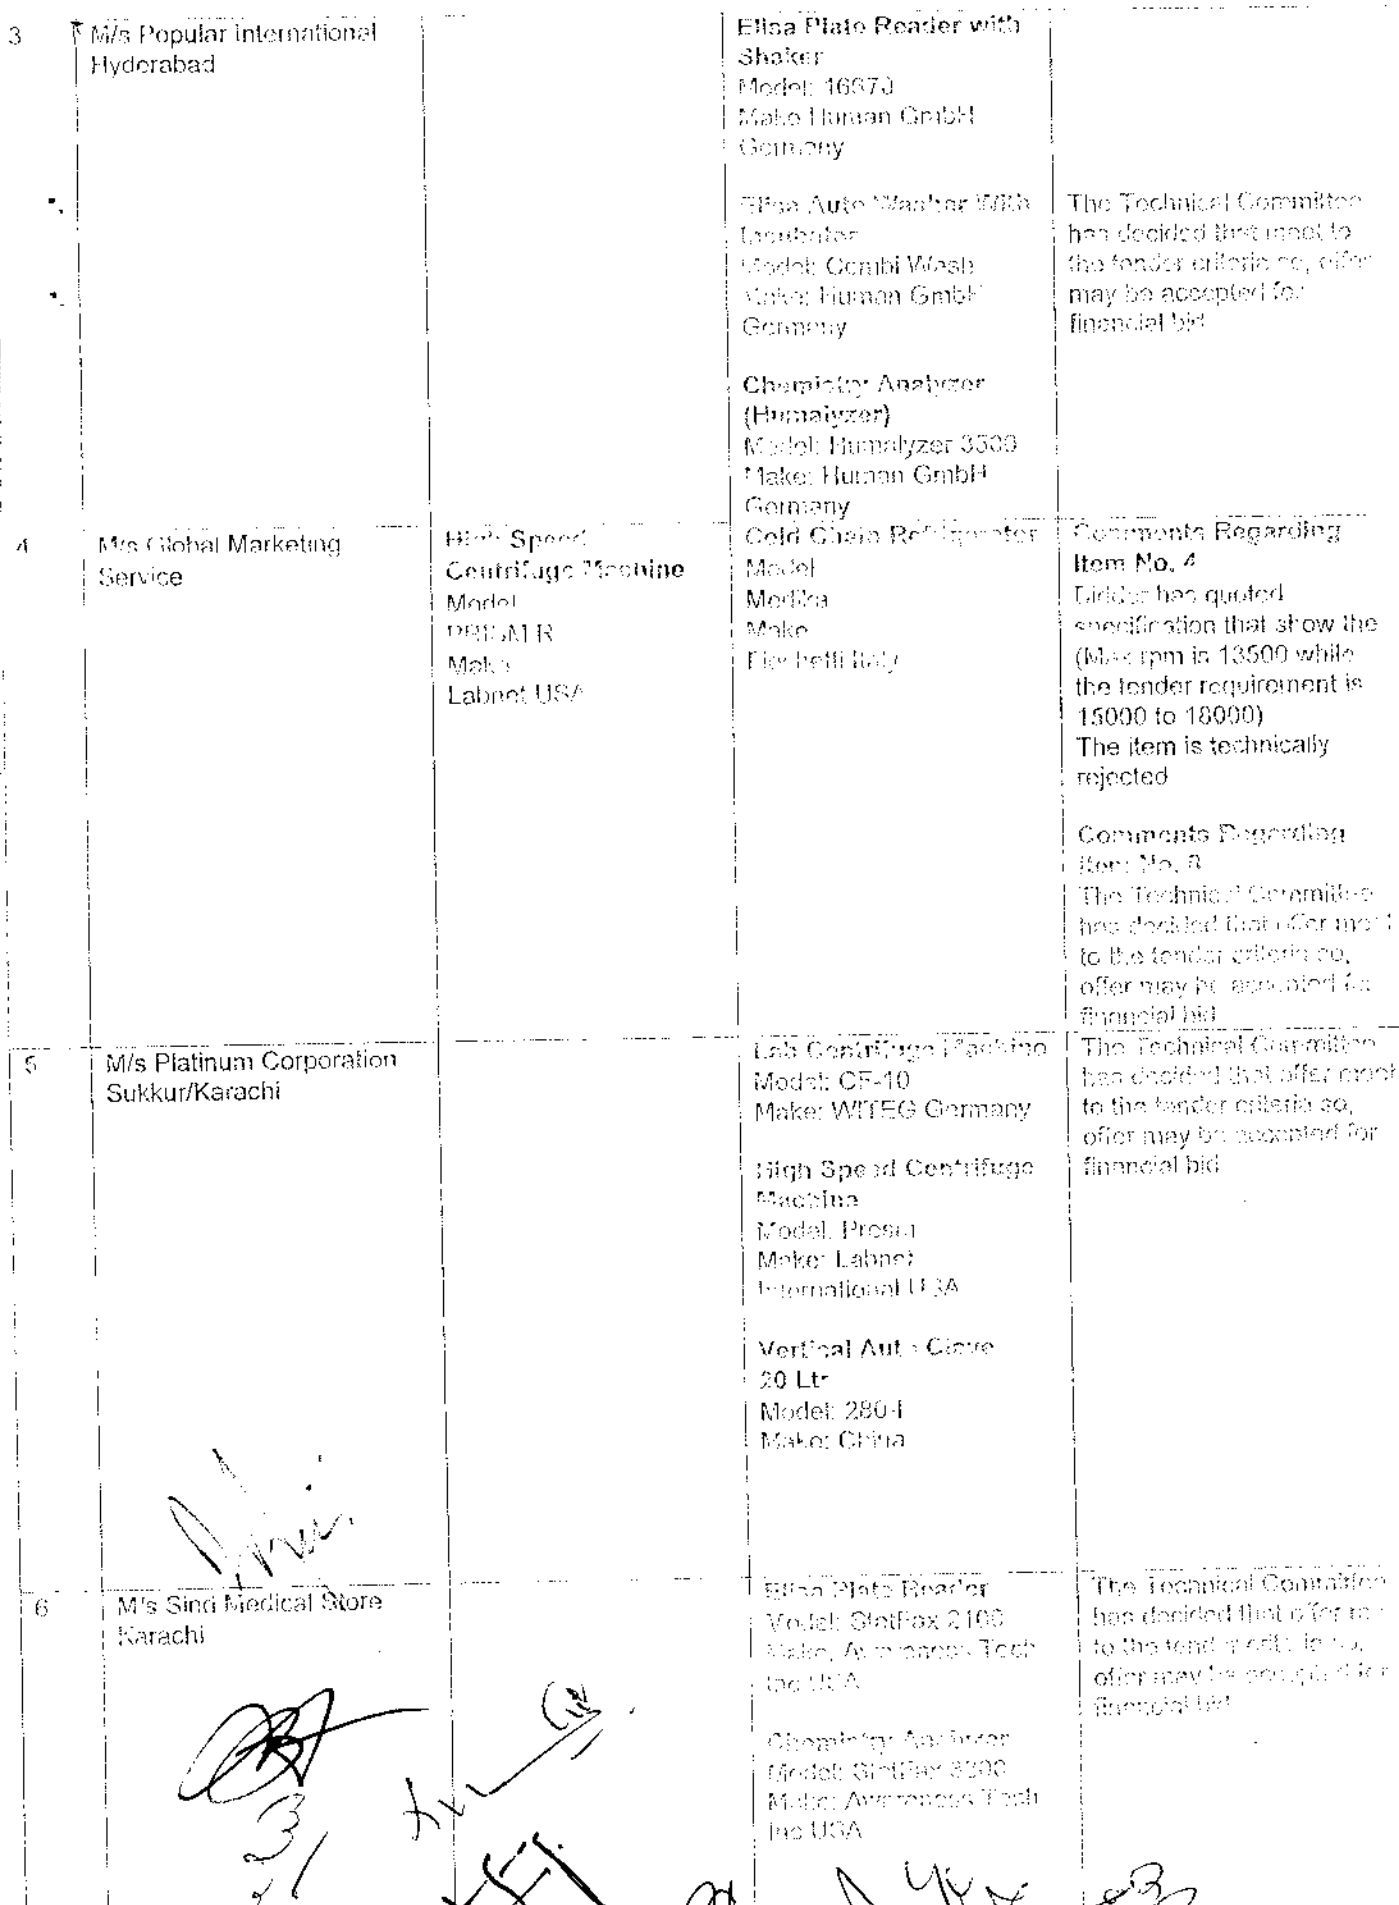 3
M/s Popular International
Hyderabad
Elisa Plate Reader with
Shaker
Model: 16670
Make Human GmbH
Germany
Elisa Auto Washer With
Incubator
Model: Combi Wash
Make: Human GmbH
Germany
Chemistry Analyzer
(Humalyzer)
Model: Humalyzer 3500
Make: Human GmbH
Germany
The Technical Committee
has decided that meet to
the tender criteria so, offer
may be accepted for
financial bid
4
M/s Global Marketing
Service
High Speed
Centrifuge Machine
Model
PRISM R
Make
Labnet USA
Cold Chain Refrigerator
Model
Medika
Make
Italy
Comments Regarding
Item No. 4
Bidder has quoted
specification that show the
(Max rpm is 13500 while
the tender requirement is
15000 to 18000)
The item is technically
rejected
Comments Regarding
Item No. 8
The Technical Committee
has decided that offer meet
to the tender criteria so,
offer may be accepted for
financial bid
5
M/s Platinum Corporation
Sukkur/Karachi
Lab Centrifuge Machine
Model: CF-10
Make: WITEG Germany
High Speed Centrifuge
Machine
Model: Presm
Make: Labnet
International USA
Vertical Auto Clave
20 Ltr
Model: 280-I
Make: China
The Technical Committee
has decided that offer meet
to the tender criteria so,
offer may be accepted for
financial bid
6
M/s Sind Medical Store
Karachi
Elisa Plate Reader
Model: StatFax 2100
Make: Awareness Tech
Inc USA
Chemistry Analyzer
Model: StatFax 3300
Make: Awareness Tech
Inc USA
The Technical Committee
has decided that offer
to the tender criteria so,
offer may be accepted for
financial bid